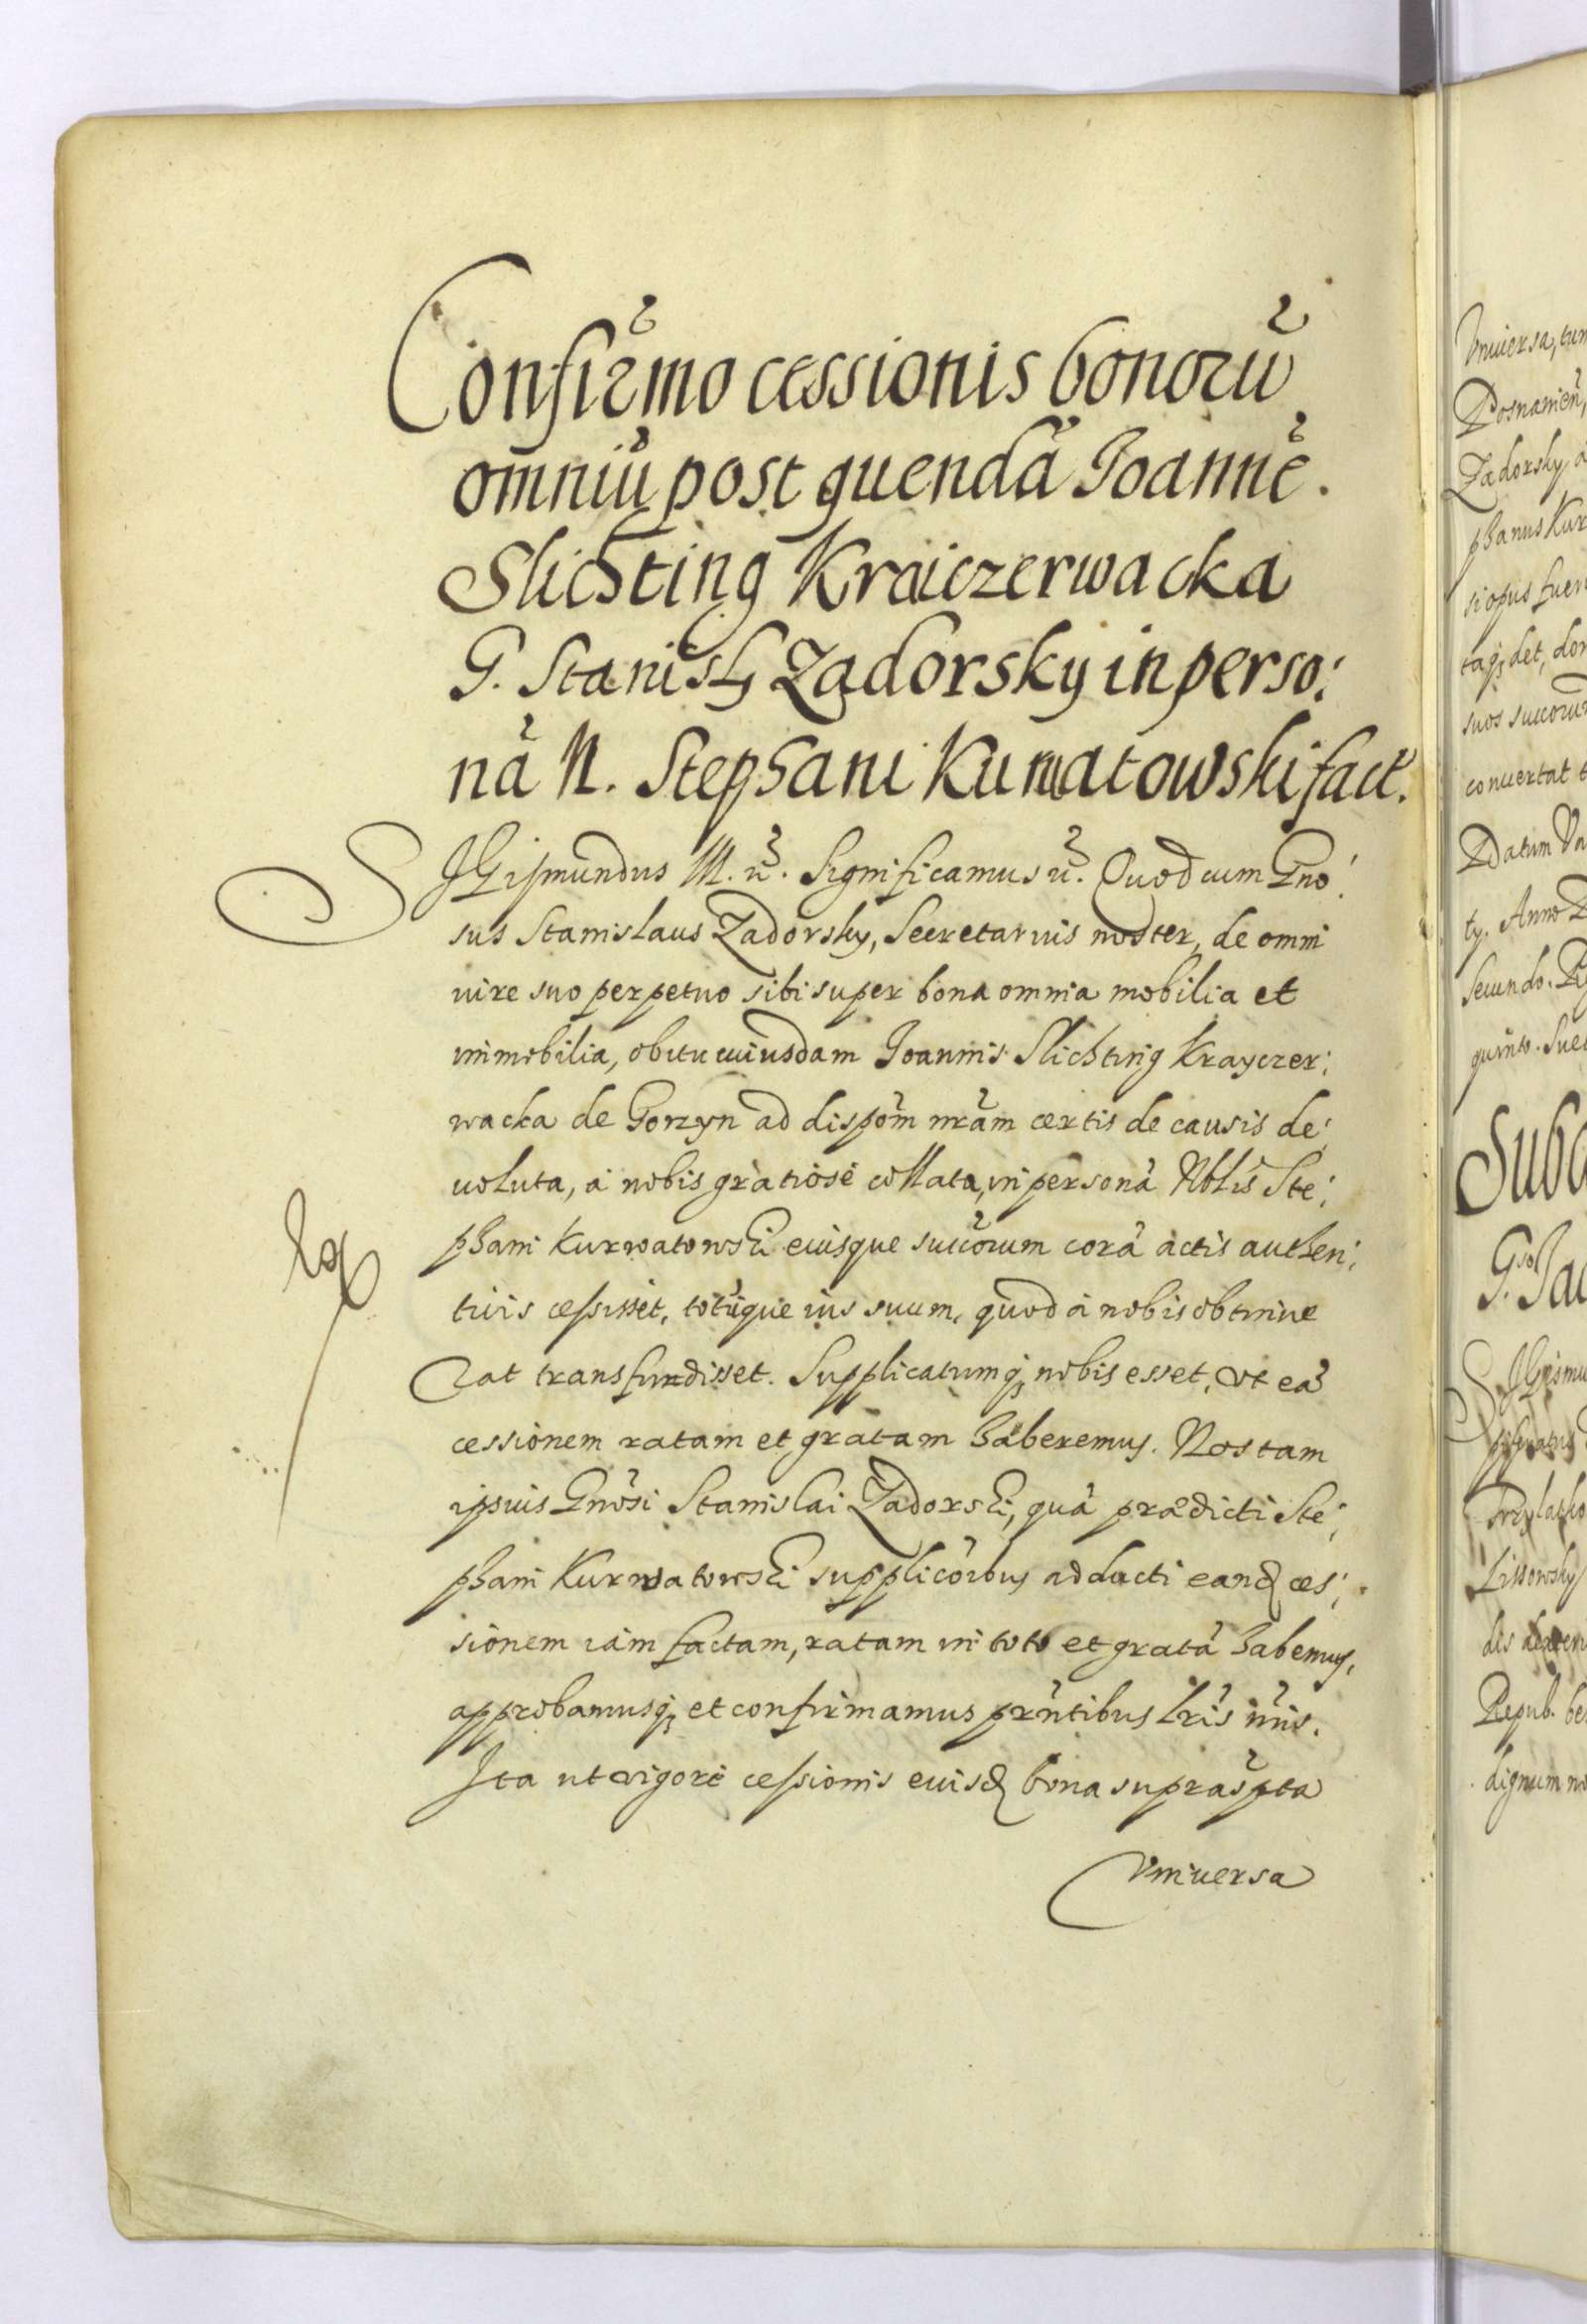 Confirmo cessionis bonorũ
omniũ post quendã Joannẽ.
Slichting Kraiczerwacka
G. Stanisl̃ Zadorsky in perso:
nã N. Stephani Kurwatowski fact̃.
SJGismundus III. ñ. Significamus ñ. Quod cum Gño:
sus Stanislaus Zadorsky, Secretarius noster, de omni
iure suo perpetuo sibi super bona omnia mobilia et
immobilia, obitu cuiusdam Joannis Slichting Krayczer:
wacka de Gorzyn ad dispõm nrãm certis de causis de:
voluta, a nobis gratiose collata, in personã Nblis̃ Ste:
phani Kurwatowski eiusque succõrum corã actis authen:
ticis cessisset, totũque ius suum, quod a nobis obtinue
rat transfundisset. Supplicatumq₃ nobis esset, vt eã
cessionem ratam et gratam haberemus. Nos tam
ipsius Gnõsi Stanislai Zadorski, quã prædicti Ste:
phani Kurwatowski supplicõibus adducti eand̃ ces:
sionem iam factam, ratam in toto et gratã habemus,
approbamusq₃ et confirmamus prñtibus lrĩs nrĩs.
Ita ut vigore cessionis eiusd̃ bona suprasp̃ta
Vniversa
Vniversa, tum
Posnanień,
Zadorsky a
phanus Kur
si opus fuer
taq₃ det, don
suos succorum
convertat
Datum Va
ty. Anno D
Secundo.
quinto. Sue
Sub
G.
SJGismu
Lissowsky
Repub. be
dignum no